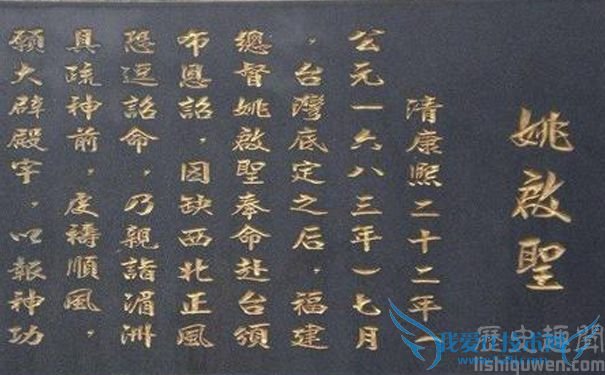 姚啟聖
清康熙二十二年︵
公元一六八三年︶七月
，台灣底定之后，福建
總督姚啟聖奉命赴台頒
布恩詔，因缺西北正風
恐詔命，乃親詣湄洲
具疏神前，虔禱順風，
願大辟殿宇，以報神功
歷史趣聞
lishiquwen.com